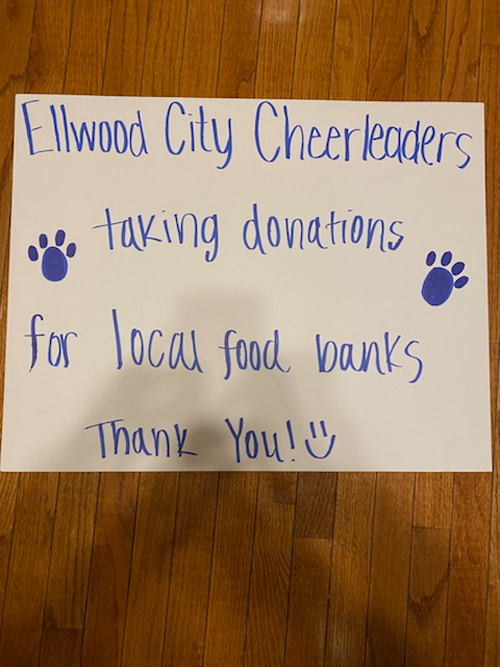 Ellwood City Cheerleaders
taking donations
for local food banks
Thank You!